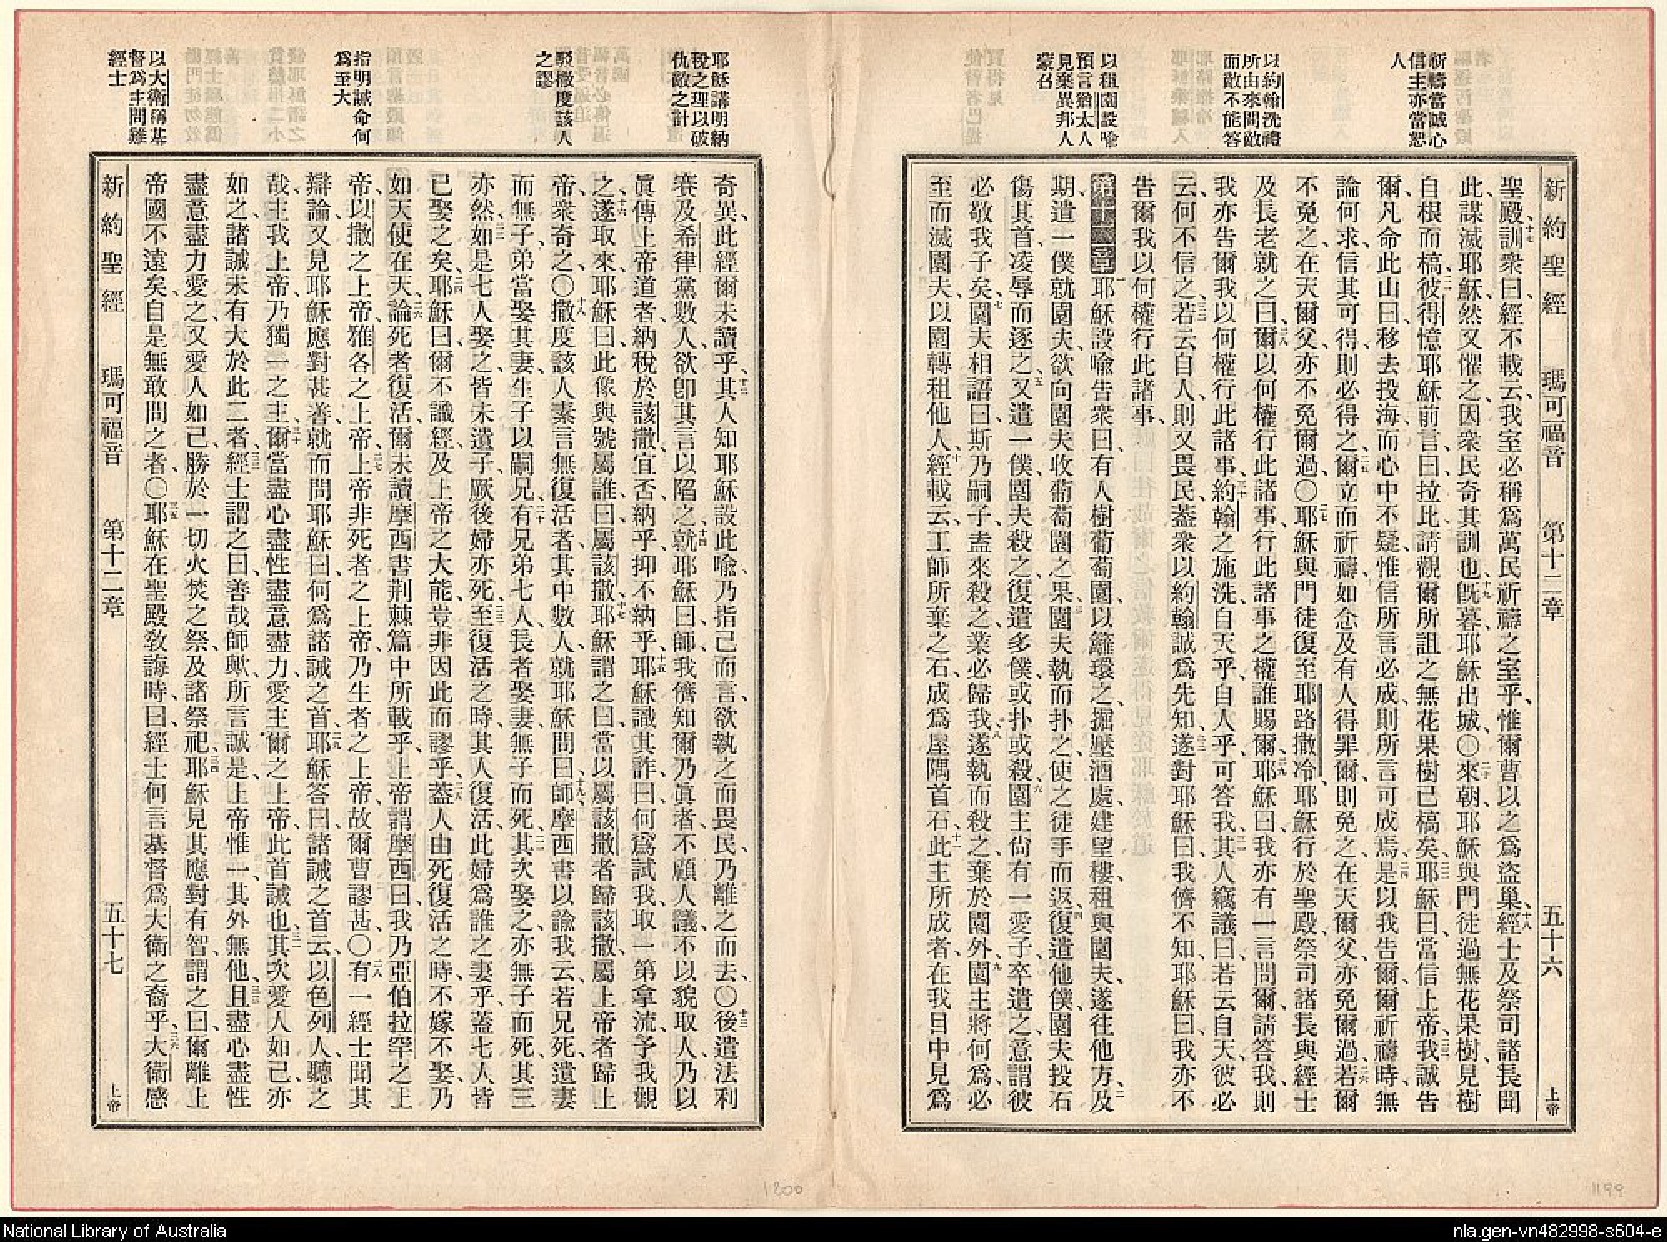 新約聖經 瑪可福音 第十二章 五十六 上帝
祈禱當誠心
信主亦當恕
人
以約翰洗禮
所由來問敵
而敵不能答
以租園設喻
預言猶太人
見棄異邦人
蒙召
聖殿訓衆曰經不載云我室必稱爲萬民祈禱之室乎惟爾曹以之爲盜巢經士及祭司諸長聞
此謀滅耶穌然又懼之因衆民奇其訓也旣暮耶穌出城〇來朝耶穌與門徒過無花果樹見樹
自根而槁彼得憶耶穌前言曰拉比請觀爾所詛之無花果樹已槁矣耶穌曰當信上帝我誠告
爾凡命此山曰移去投海而心中不疑惟信所言必成則所言可成焉是以我告爾爾祈禱時無
論何求信其可得則必得之爾立而祈禱如念及有人得罪爾則免之在天爾父亦免爾過若爾
不免之在天爾父亦不免爾過〇耶穌與門徒復至耶路撒冷耶穌行於聖殿祭司諸長與經士
及長老就之曰爾以何權行此諸事行此諸事之權誰賜爾耶穌曰我亦有一言問爾請答我則
我亦告爾我以何權行此諸事約翰之施洗自天乎自人乎可答我其人竊議曰若云自天彼必
云何不信之若云自人則又畏民蓋衆以約翰誠爲先知遂對耶穌曰我儕不知耶穌曰我亦不
告爾我以何權行此諸事
第十二章 耶穌設喻告衆曰有人樹葡萄園以籬環之掘壓酒處建望樓租與園夫遂往他方及
期遣一僕就園夫欲向園夫收葡萄園之果園夫執而扑之使之徒手而返復遣他僕園夫投石
傷其首凌辱而逐之又遣一僕園夫殺之復遣多僕或扑或殺園主尚有一愛子卒遣之意謂彼
必敬我子矣園夫相語曰斯乃嗣子盍來殺之業必歸我遂執而殺之棄於園外園主將何爲必
至而滅園夫以園轉租他人經載云工師所棄之石成爲屋隅首石此主所成者在我目中見爲
耶穌講明納
稅之理以破
仇敵之計
駁撒度該人
之謬
指明誡命何
爲至大
以大衛稱基
督爲主問難
經士
奇異此經爾未讀乎其人知耶穌設此喻乃指己而言欲執之而畏民乃離之而去〇後遣法利
賽及希律黨數人欲卽其言以陷之就耶穌曰師我儕知爾乃眞者不顧人議不以貌取人乃以
眞傳上帝道者納稅於該撒宜否納乎抑不納乎耶穌識其詐曰何爲試我取一第拿流予我觀
之遂取來耶穌曰此像與號屬誰曰屬該撒耶穌謂之曰當以屬該撒者歸該撒屬上帝者歸上
帝衆奇之〇撒度該人素言無復活者其中數人就耶穌問曰師摩西書以諭我云若兄死遺妻
而無子弟當娶其妻生子以嗣兄有兄弟七人長者娶妻無子而死其次娶之亦無子而死其三
亦然如是七人娶之皆未遺子厥後婦亦死至復活之時其人復活此婦爲誰之妻乎蓋七人皆
已娶之矣耶穌曰爾不識經及上帝之大能豈非因此而謬乎蓋人由死復活之時不嫁不娶乃
如天使在天論死者復活爾未讀摩西書荆棘篇中所載乎上帝謂摩西曰我乃亞伯拉罕之上
帝以撒之上帝雅各之上帝上帝非死者之上帝乃生者之上帝故爾曹謬甚〇有一經士聞其
辯論又見耶穌應對甚善就而問耶穌曰何爲諸誡之首耶穌答曰諸誡之首云以色列人聽之
哉主我上帝乃獨一之主爾當盡心盡性盡意盡力愛主爾之上帝此首誡也其次愛人如己亦
如之諸誡未有大於此二者經士謂之曰善哉師歟所言誠是上帝惟一其外無他且盡心盡性
盡意盡力愛之又愛人如己勝於一切火焚之祭及諸祭祀耶穌見其應對有智謂之曰爾離上
帝國不遠矣自是無敢問之者〇耶穌在聖殿敎誨時曰經士何言基督爲大衛之裔乎大衛感
新約聖經 瑪可福音 第十二章 五十七 上帝
1200
1199
National Library of Australia
nla.gen-vn482998-s604-e